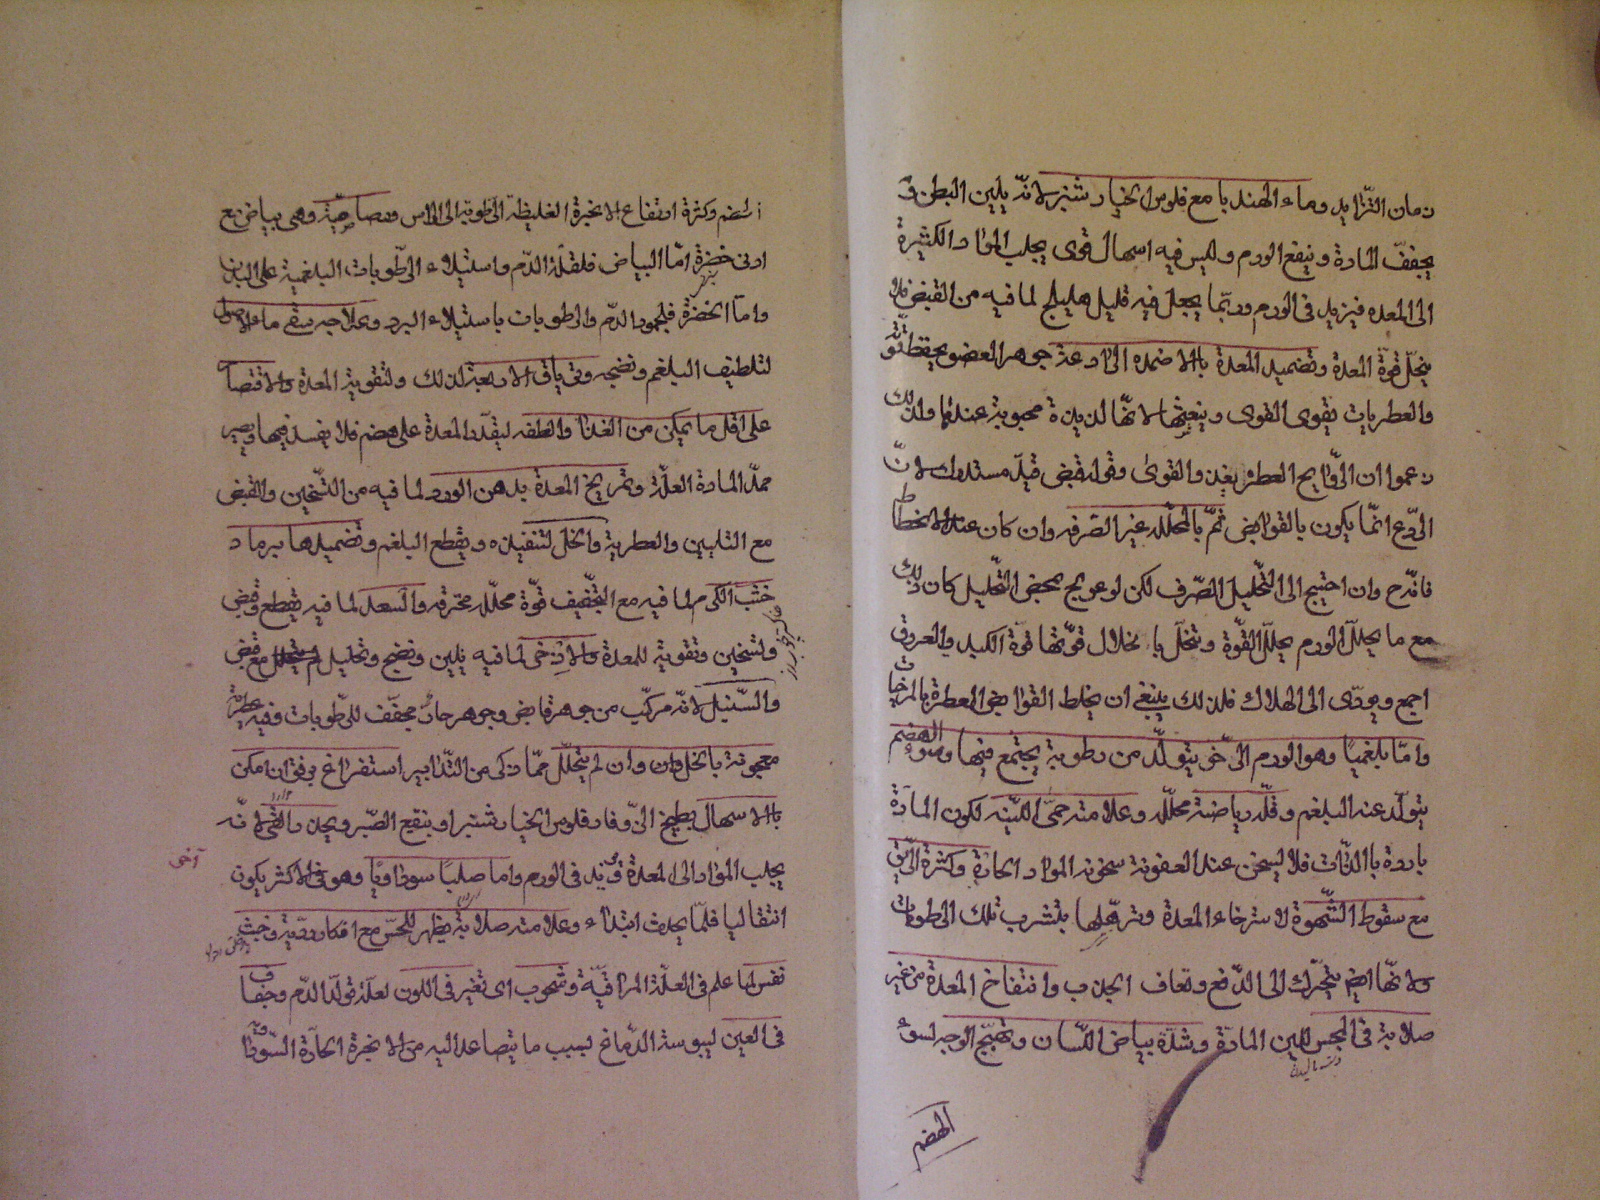 زمان التزايد وماء الهندبا مع فلوس الخيار شنبر لانه يلين البطن و
يجفف المادة وينفع الورم وليس فيه اسهال قوى يجلب المواد الكثيرة
الى المعده فيزيد فى الورم وربما يجعل فيه قليل هليلج لما فيه من القبض فلا
يتحلل قوة المعدة وتضميد المعدة بالاضمده الرادعة جوهر العضو يحفظ قوته
والعطريات تقوى القوى وينعشها لانها لذيذة محبوبة عندها ولذلك
زعموا ان الروايح العطرة يغذ والقوى وقوابض قيل مستدرك لان
الردع انما يكون بالقوابض ثم بالمحلله غير الصرفه وان كان عند الانحطاط
فانه وان احتيج الى التحليل الصرف لكن لو عولج بمحض التحليل كان ذلك
مع ما يحلل الورم يحلل القوة وتنحل بانحلال قوتها قوة الكبد والعروق
اجمع ويودى الى الهلاك فلذلك ينبغى ان يخلط القوابض العطرة بالمرخيات
واما بلغميا وهو الورم الرخو يتولد من رطوبة يجتمع فيها وسوء الهضم
يتولد عنه البلغم وقله رياضة محلله وعلامته حمى اللينه لكون المادة
باردة بالذات فلا يسخن عند العفونة سخونه المواد الحادة وكثرة الريق
مع سقوط الشهوة لاسترخاء المعدة وترهلها بتشرب تلك الرطوبات
ولانها ايضا يتحرك الى الدفع وتعاف الجذب وانتفاخ المعدة من غير
صلابة فى المجس للين المادة وشدة بياض اللسان وتهبج الوجه لسوء
الهضم
الهضم وكثرة ارتفاع الابخرة الغليظة الرطوبة الى الراس ورصاصية وهى بياض مع
ادنى خضرة اما البياض فلقلة الدم واستيلاء الرطوبات البلغمية على البدن
واما الخضرة فلجمود الدم والرطوبات باستيلاء البرد وعلاجه سقى ماء الاصول
لتلطيف البلغم ونضجه وترياق الاربعة لذلك ولتقوية المعدة والاقتصار
على اقل ما يمكن من الغذاء والطفه ليقدر المعدة على هضم فلا يفسد فيها ويصير
ممد المادة العلة وتمريخ المعدة بدهن الورد لما فيه من التسخين والقبض
مع التليين والعطرية والخل لتنفيذه ويقطع البلغم وتضميدها برماد
خشب الكرم لما فيه مع التجفيف قوة محلله محترقه والسعد لما فيه تقطع وقبض
وتسخين وتقوية للمعدة والاذخر لما فيه تليين ونضج وتحليل مع قبض
والسنبل لانه مركب من جوهر قابض وجوهر حار مجفف للرطوبات ففيه عطرية
معجونة بالخل وان لم يتحلل مما ذكر من التدابير استفراغ برفق ان امكن
بالاسهال بطبيخ الزوفا وفلوس الخيار شنبر او بنقيع الصبر ويحذر القى لانه
يجلب المواد الى المعدة ويزيد فى الورم واما صلبا سوداويا وهو فى الاكثر يكون
انتقاليا فلما يحدث ابتداء وعلامته صلابة يظهر للحس مع افكار ردية وخبث
نفس لما علم فى العلة المراقية وشحوب اى تغير فى اللون لعلة تولد الدم وجفاف
فى العين ليبوسة الدماغ بسبب ما يتصاعد اليه من الابخرة الحادة السوداوية